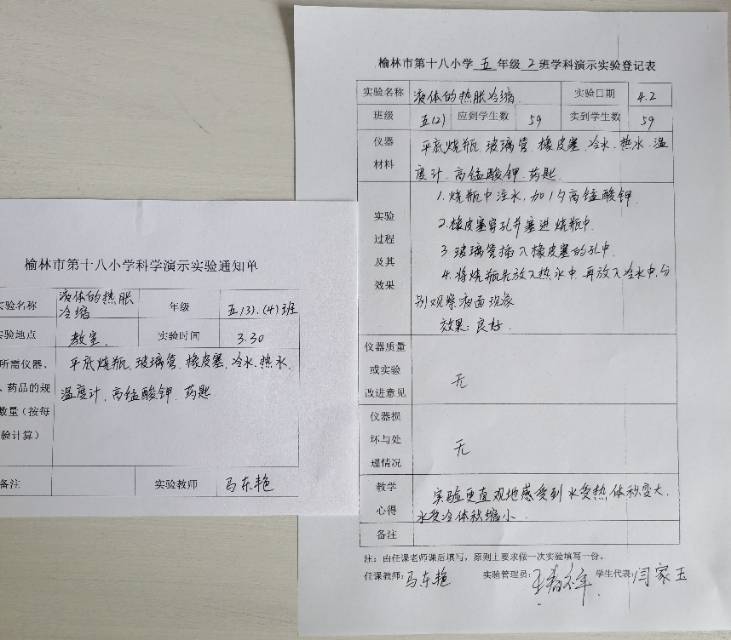 榆林市第十八小学科学演示实验通知单
实验名称 液体的热胀冷缩 年级 五(3).(4)班
实验地点 教室 实验时间 3.30
所需仪器、 平底烧瓶、玻璃管、橡皮塞、冷水、热水、
、药品的规 温度计、高锰酸钾、药匙
数量（按每
验计算）
备注 实验教师 马东艳
榆林市第十八小学 五 年级 2 班学科演示实验登记表
实验名称 液体的热胀冷缩. 实验日期 4.2
班级 五(2) 应到学生数 59 实到学生数 59
仪器 平底烧瓶、玻璃管、橡皮塞、冷水、热水、温
材料 度计、高锰酸钾、药匙
实验
过程
及其
效果
1.烧瓶中注水,加1勺高锰酸钾.
2.橡皮塞穿孔并塞进烧瓶中.
3.玻璃管插入橡皮塞的孔中.
4.将烧瓶先放入热水中,再放入冷水中,分
别观察液面现象
效果:良好.
仪器质量
或实验
改进意见
无
仪器损
坏与处
理情况
无
教学 实验更直观地感受到水受热,体积变大,
心得 水受冷体积缩小.
备注
注：由任课老师课后填写，原则上要求做一次实验填写一份。
任课教师: 马东艳 实验管理员: 学生代表: 闫家玉